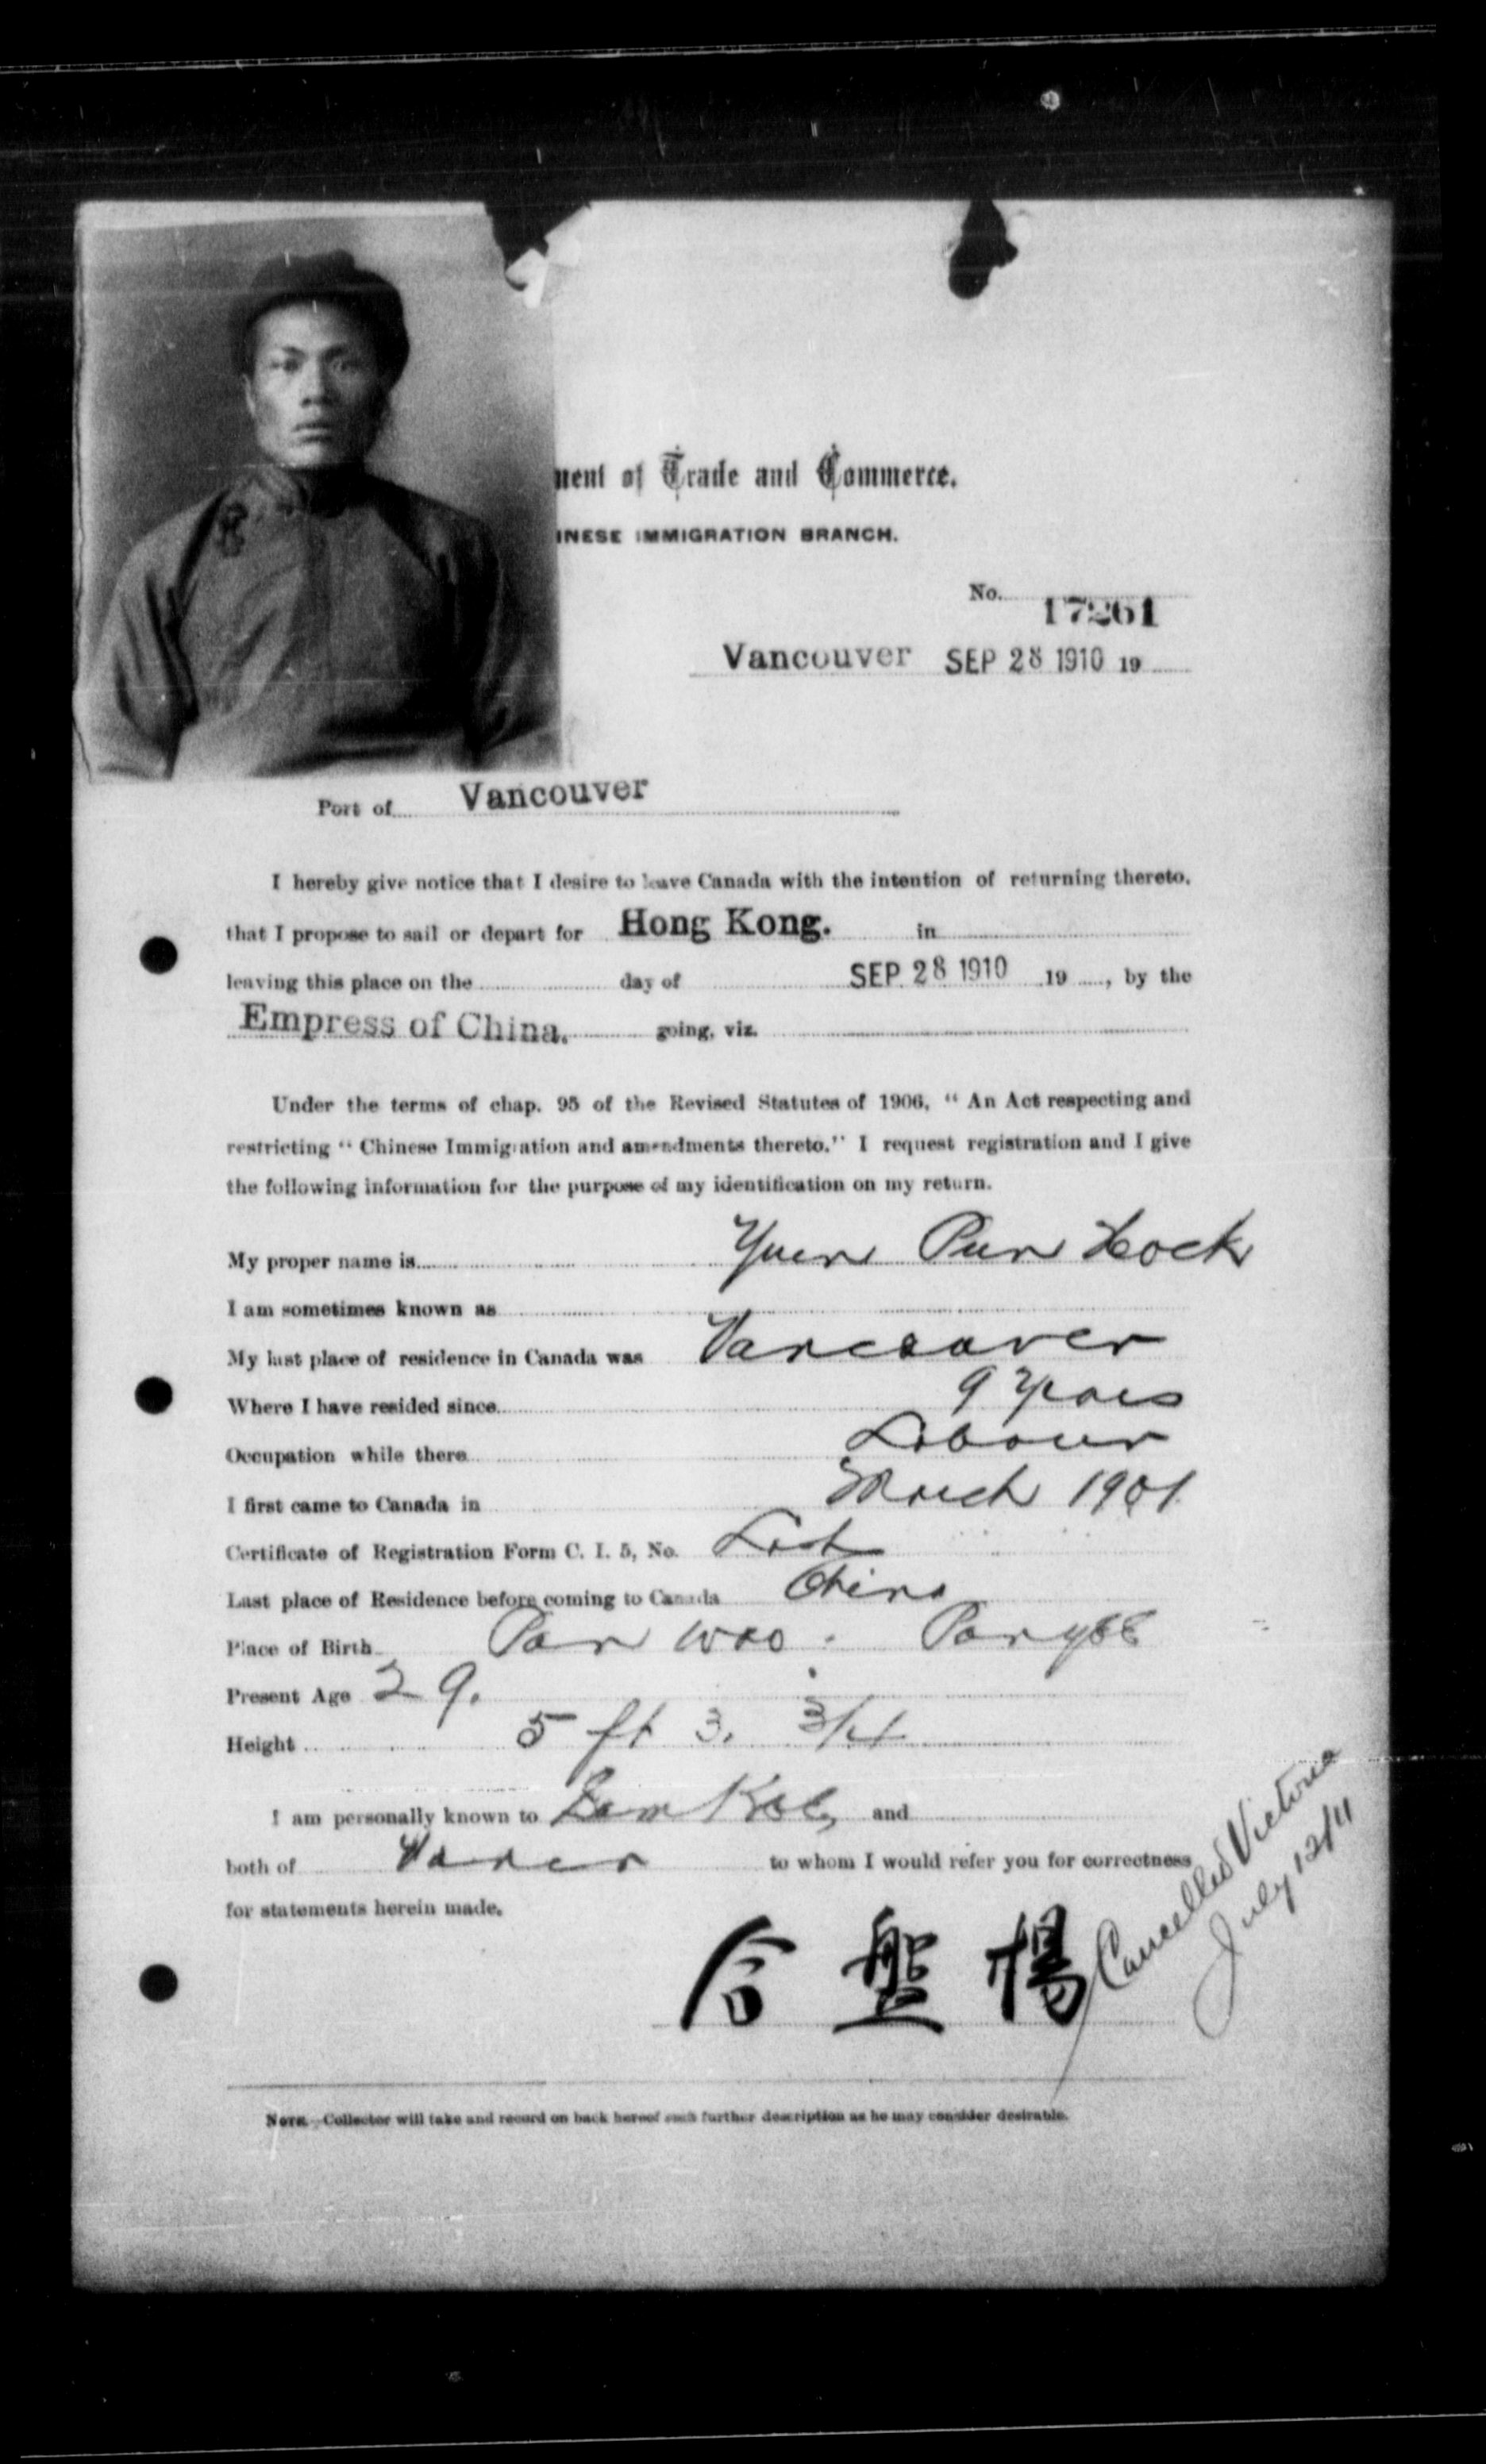 nent of Trade and Commerce.
INESE IMMIGRATION BRANCH.
No. 17261
Vancouver SEP 28 1910 19
Port of Vancouver
I hereby give notice that I desire to leave Canada with the intention of returning thereto,
that I propose to sail or depart for Hong Kong. in
leaving this place on the day of SEP 28 1910 19 , by the
Empress of China. going, viz.
Under the terms of chap. 95 of the Revised Statutes of 1906, “ An Act respecting and
restricting “ Chinese Immigration and amendments thereto.” I request registration and I give
the following information for the purpose of my identification on my return.
My proper name is Yuen Pun Hock
I am sometimes known as
My last place of residence in Canada was Vancouver
Where I have resided since 9 Years
Occupation while there Labour
I first came to Canada in March 1901
Certificate of Registration Form C. I. 5, No.
Last place of Residence before coming to Canada China
Place of Birth Pan Woo.
Present Age 29.
Height 5 ft 3. 3/4
I am personally known to and
both of Vancr to whom I would refer you for correctness
for statements herein made.
楊盤
Cancelled Victoria
July 12/11
NOTE.—Collector will take and record on back hereof such further description as he may consider desirable.